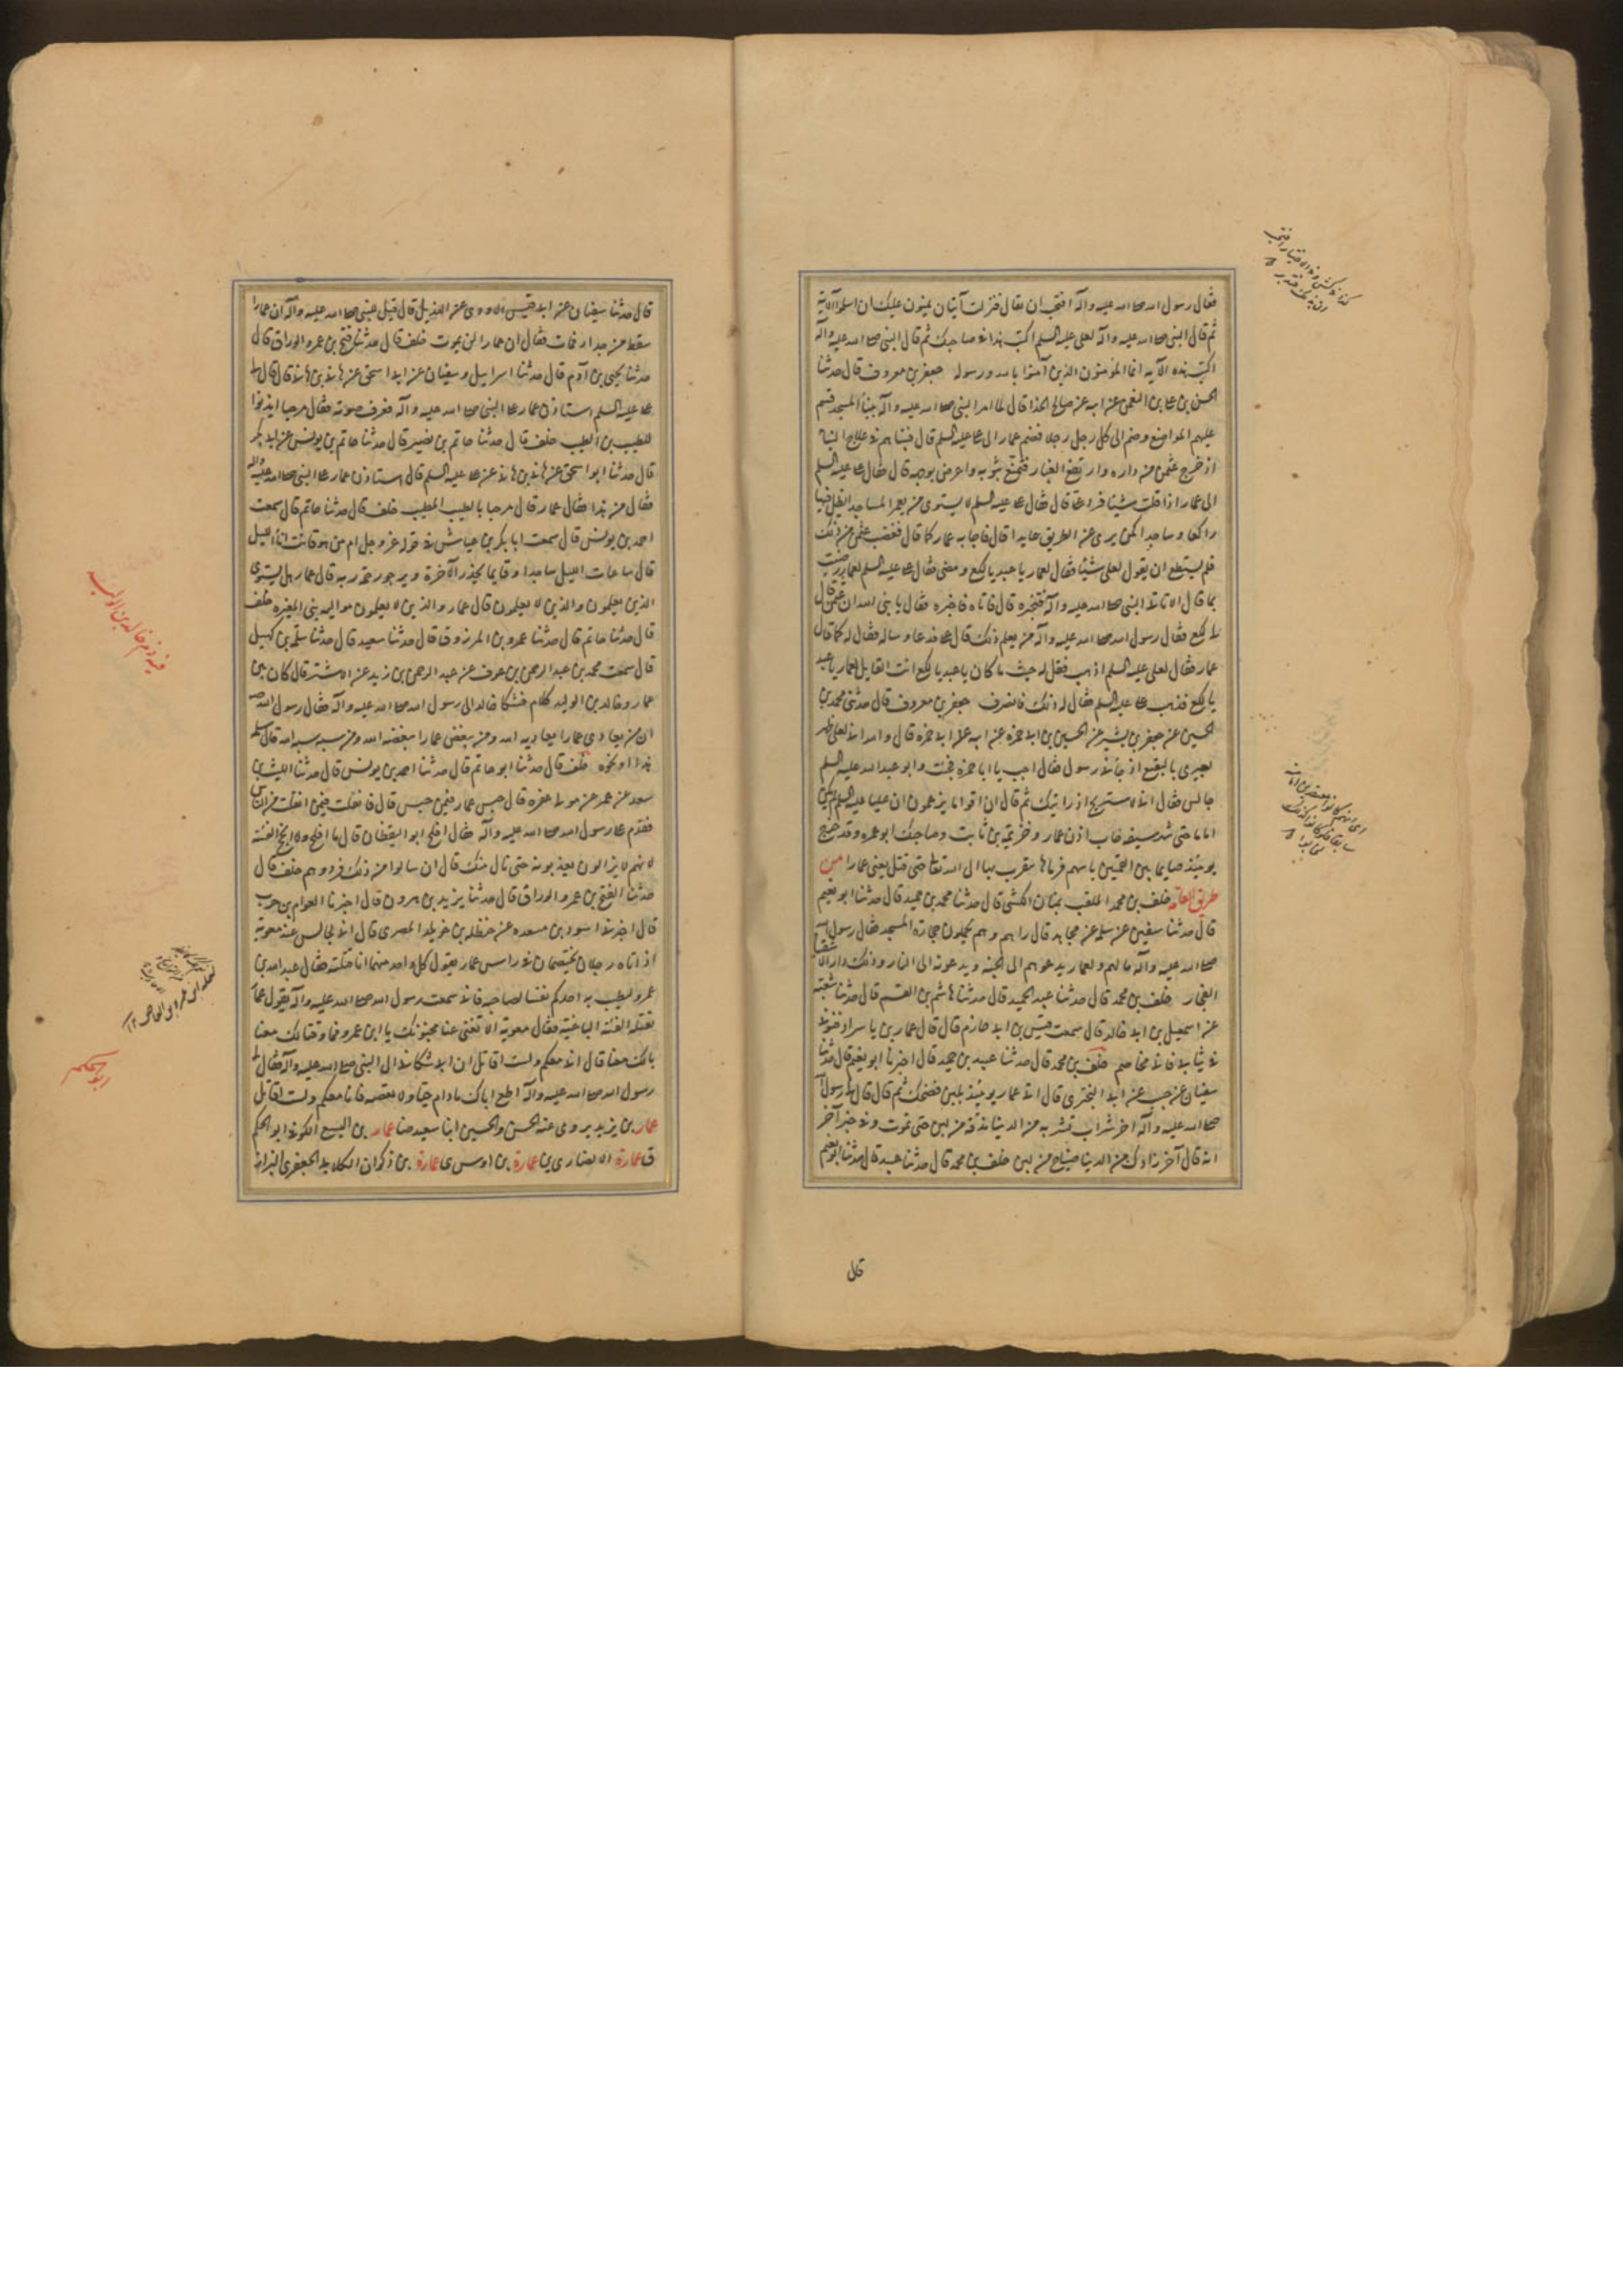 فقال رسول الله صلى الله عليه وآله افتحب ان يقال فنزلت آيتان يمنون عليك ان اسلموا الآية
ثم قال النبى صلى الله عليه وآله لعلى عليه السلم اكتب هذا فى صاحبك ثم قال النبى صلى الله عليه وآله
اكتب هذه الآيه انما المؤمنون الذين آمنوا بالله ورسوله جعفر بن معروف قال حدثنا
الحسن بن على بن النعمن عن ابيه عن صالح الحذا قال لما امر النبى صلى الله عليه وآله ببنأ المسجد قسم
عليهم المواضع وضم الى كل رجل رجلا فضم عمارا الى على عليه السلم قال فبينا هم فى علاج البنا
اذ خرج عثمن من داره وارتفع الغبار فتمنع بثوبه واعرض بوجهه قال فقال على عليه السلم
الى عمار اذا قلت شيئا فرد على قال فقال على عليه السلم لا يستوى من يعمر المساجد يظل فيها
راكعا وساجدا كمن يرى عن الطريق حايدا قال فاجابه عمار كما قال فغضب عثمن من ذلك
فلم يستطع ان يقول لعلى شيئا فقال لعمار يا عبد يا لكع ومضى فقال على عليه السلم لعمار رضيت
بما قال لك الا تاتى النبى صلى الله عليه وآله فتخبره قال فاتاه فاخبره فقال يا نبى الله ان عثمن قال
لى يا لكع فقال رسول الله صلى الله عليه وآله من يعلم ذلك قال على فدعاه وساله فقال له كما قال
عمار فقال لعلى عليه السلم اذهب فقل له حيث ما كان يا عبد يا لكع انت القايل لعمار يا عبد
يا لكع فذهب على عليه السلم فقال له ذلك فانصرف جعفر بن معروف قال حدثنى محمد بن
الحسين عن جعفر بن بشير عن الحسين بن ابى حمزه عن ابيه ابى حمزه قال والله انى لعلى ظهر
بعيرى بالبقيع اذ جأنى رسول فقال اجب يا ابا حمزه فجئت وابو عبد الله عليه السلم
جالس فقال انى لاستريح اذا رايتك ثم قال ان اقواما يزعمون ان عليا عليه السلم لم يكن
اماما حتى شهر سيفه خاب اذن عمار وخزيمة بن ثابت وصاحبك ابو عمره وقد خرج
يومئذ صايما بين الفئتين باسهم فرماها يتقرب بها الى الله تعالى حتى قتل يعنى عمارا من
طريق العامة خلف بن محمد الملقب بمنان الكشى قال حدثنا محمد بن حميد قال حدثنا ابو نعيم
قال حدثنا سفين عن سلمة عن مجاهد قال راهم وهم يحملون حجارة المسجد فقال رسول الله
صلى الله عليه وآله ما لهم ولعمار يدعوهم الى الجنه ويدعونه الى النار وذلك دار الاشقيا
الفجار خلف بن محمد قال حدثنا عبيد الحميد قال حدثنا هاشم بن القسم قال حدثنا شعبة
عن اسمعيل بن ابى خالد قال سمعت قيس بن ابى حازم قال قال عمار بن ياسر ادفنونى
فى ثيابى فانى مخاصم خلف بن محمد قال حدثنا عبيد بن حميد قال اخبرنا ابو نعيم قال حدثنا
سفيان عن حبيب عن ابى البخترى قال اتى عمار يومئذ بلبن فضحك ثم قال قال لى رسول الله
صلى الله عليه وآله اخر شراب تشربه من الدنيا مذقة من لبن حتى تموت وفى خبر آخر
انه قال آخر زادك من الدنيا ضياح من لبن خلف بن محمد قال حدثنا عبيد قال حدثنا ابو نعيم
قال
قال حدثنا سفيان عن ابى قيس الاودى عن الهذيل قال قيل للنبى صلى الله عليه وآله ان عمارا
سقط من جدار فمات فقال ان عمارا لن يموت خلف قال حدثنا فتح بن عمرو الوراق قال
حدثنا يحيى بن آدم قال حدثنا اسرايل وسفيان عن ابى اسحق عن هانى بن هانى قال قال
على عليه السلم استاذن عمار على النبى صلى الله عليه وآله فعرف صوته فقال مرحبا ايذنوا
للطيب بن الطيب خلف قال حدثنا حاتم بن نصير قال حدثنا حاتم بن يونس عن ابى بكر
قال حدثنا ابو اسحق عن هانى بن هانى عن على عليه السلم قال استاذن عمار على النبى صلى الله عليه وآله
فقال من هذا فقال عمار قال مرحبا بالطيب المطيب خلف قال حدثنا حاتم قال سمعت
احمد بن يونس قال سمعت ابا بكر بن عياش فى قوله عز وجل ام من هو قانت اناء الليل
قال ساعات الليل ساجدا وقايما يحذر الآخرة ويرجو رحمة ربه قال عمار هل يستوى
الذين يعلمون والذين لا يعلمون قال عمار والذين لا يعلمون مواليه بنى المغيره خلف
قال حدثنا حاتم قال حدثنا عمرو بن المرزوق قال حدثنا سعيد قال حدثنا سلمة بن كهيل
قال سمعت محمد بن عبد الرحمن بن عوف عن عبد الرحمن بن زيد عن الاشتر قال كان بين
عمار وخالد بن الوليد كلام فشكا خالد الى رسول الله صلى الله عليه وآله فقال رسول الله ص
ان من يعادى عمارا يعاديه الله ومن يبغض عمارا يبغضه الله ومن سبه سبه الله قال سلمة
هذا او نحوه خلف قال حدثنا ابو حاتم قال حدثنا احمد بن يونس قال حدثنا الليث بن
سعد عن عمر عن مولى غفره قال حبس عمار فيمن حبس قال فانفلت فيمن انفلت من الناس
فقدم على رسول الله صلى الله عليه وآله فقال افلح ابو اليقظان قال ما افلح ولا انجح لنفسه
لانهم لا يزالون يعذبونه حتى نال منك قال ان سالوا من ذلك فزدهم خلف قال
حدثنا الفتح بن عمرو الوراق قال حدثنا يزيد بن هرون قال اخبرنا العوام بن حوشب
قال اخبرنى اسود بن مسعده عن حنظله بن خويلد المصرى قال انى لجالس عند معوية
اذ اتاه رجلان يختصمان فى راس عمار يقول كل واحد منهما انا قتلته فقال عبد الله بن
عمرو ليطب به احدكم نفسا لصاحبه فانى سمعت رسول الله صلى الله عليه وآله يقول عمار
تقتله الفئة الباغية فقال معوية الا تغنى عنا مجنونك يا ابن عمرو فما وقتالك معنا
بالك معنا قال انى معكم ولست اقاتل ان ابى شكانى الى النبى صلى الله عليه وآله فقال لى
رسول الله صلى الله عليه وآله اطع اباك ما دام حيا ولا تعصه فانا معكم ولست اقاتل
عمار بن يزيد يروى عنه الحسن والحسين ابنا سعيد ضا عمار بن اليسع الكوفى ابو الحكم
ق عمارة الانصارى ين عمارة بن اوس ى عمارة بن ذكوان الكلابى الجعفرى البزاز
فيه ذم خالد بن الوليد
ابو الحكم